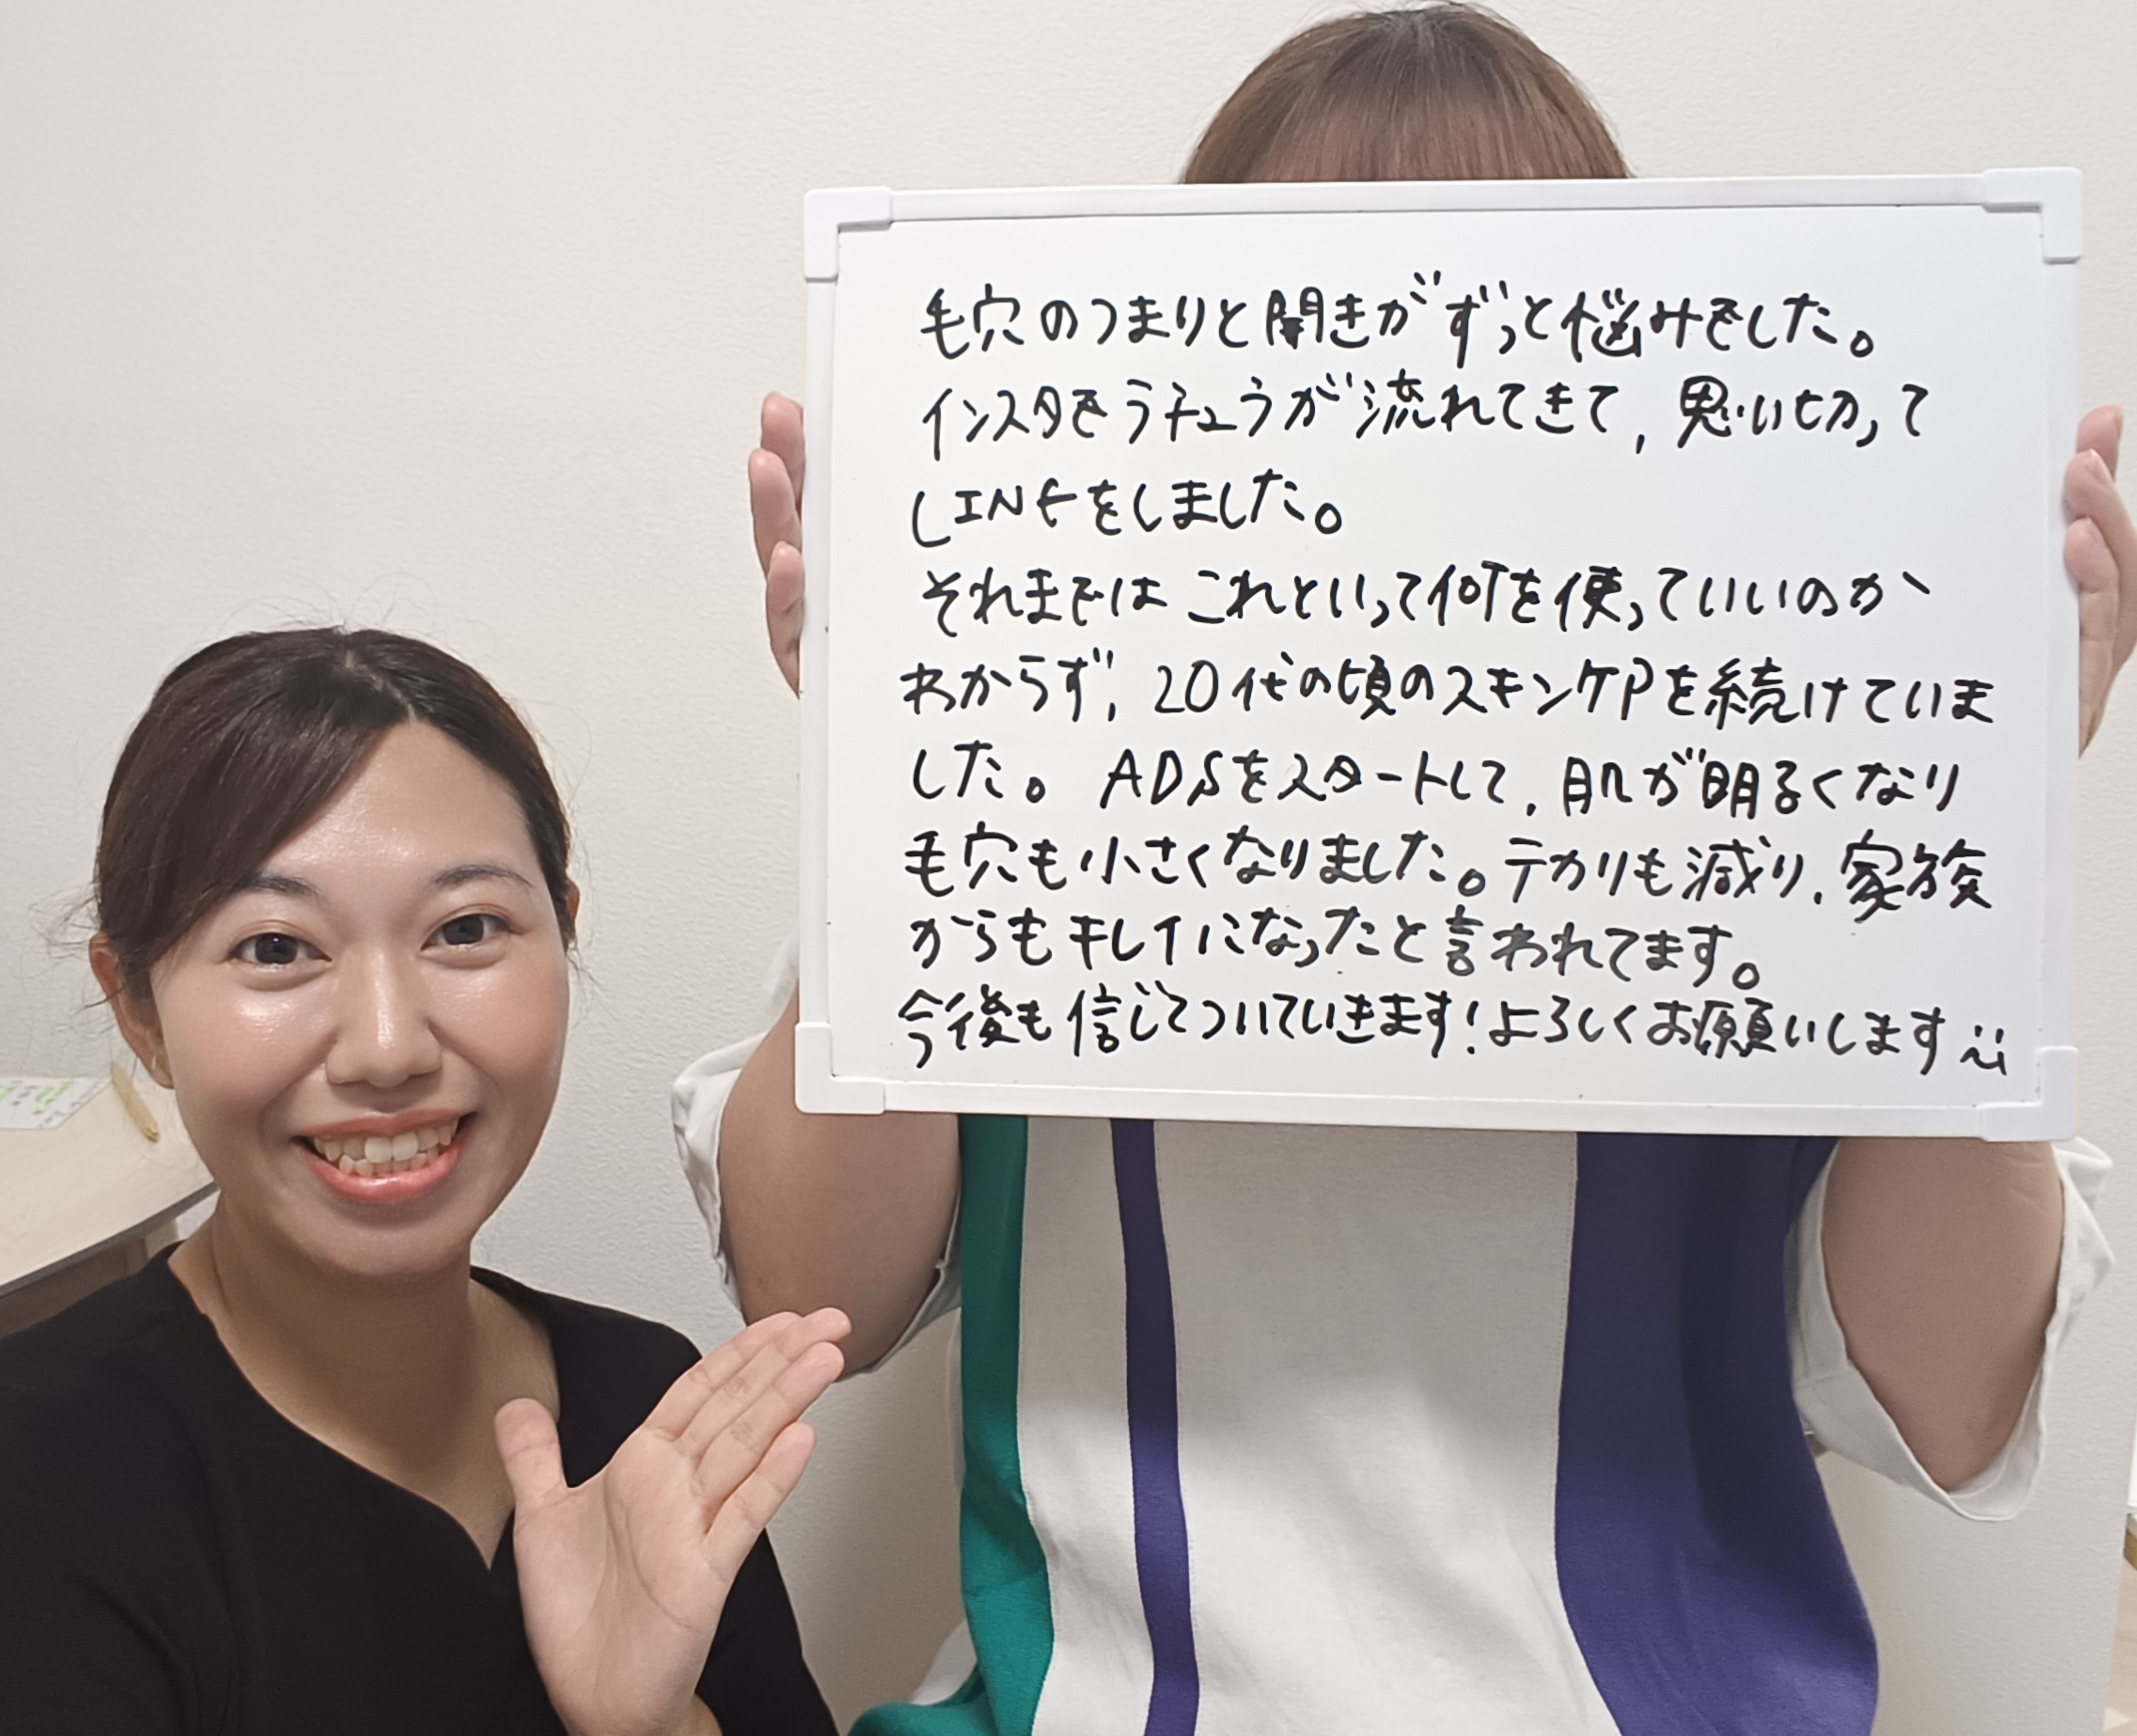 毛穴のつまりと開きがずっと悩みでした。
インスタでラチュラが流れてきて、思い切って
LINEをしました。
それまでは これといって何を使っていいのか
わからず、20代の頃のスキンケアを続けていま
した。ADSをスタートして、肌が明るくなり
毛穴も小さくなりました。テカリも減り、家族
からもキレイになったと言われてます。
今後も信じてついていきます!よろしくお願いします